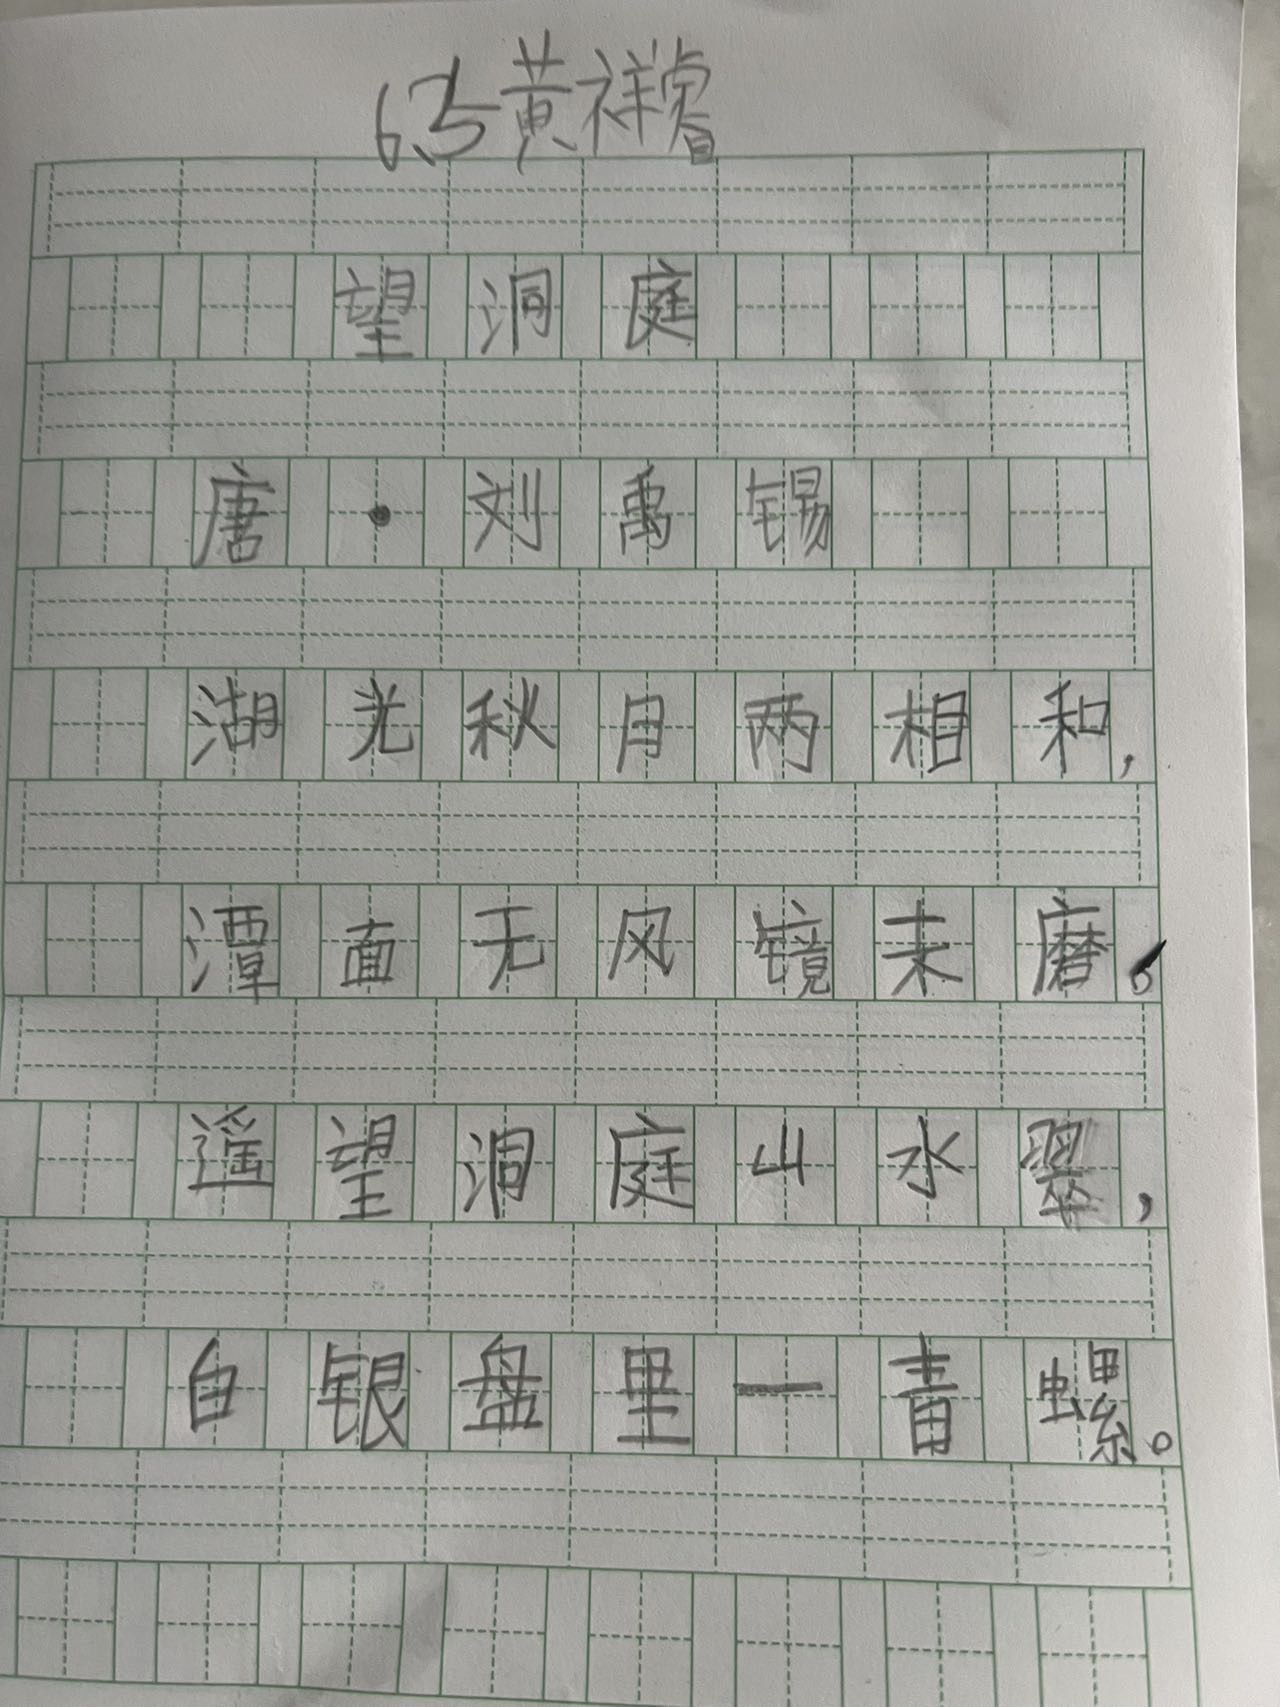 6.5黄祥睿
望洞庭
唐·刘禹锡
湖光秋月两相和，
潭面无风镜未磨。
遥望洞庭山水翠，
白银盘里一青螺。